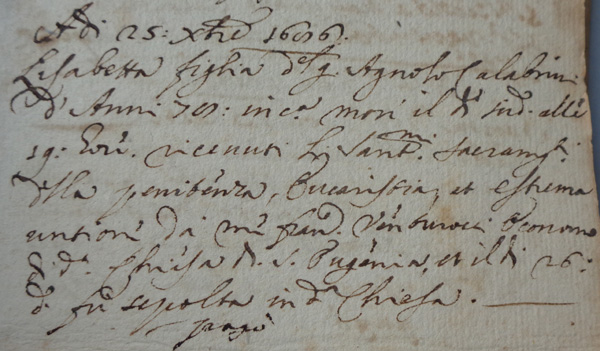 Adi 25: Xbre 1686.
Lisabetta figlia del q. Agnolo Calabrini
d'Anni 70: in ca. morì il dì sud. alle
19: hore. ricevuti li Santmi. Sacramti.
della penitenza, Eucaristia, et estrema
untione da me Fran. Venturocci Economo
d. Chiesa di S. Eugenia, et il dì 26:
d. fu sepolta in da. Chiesa.
pagò